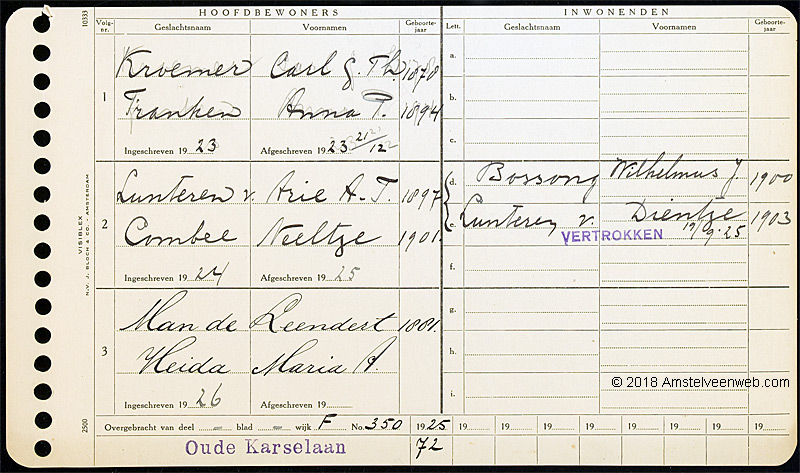 HOOFDBEWONERS
INWONENDEN
Volg-nr.
Geslachtsnaam
Voornamen
Geboorte-jaar
Lett.
Geslachtsnaam
Voornamen
Geboorte-jaar
10333
1
Kroemer Carl G. Th. 1878
Franken Anna T. 1894
Ingeschreven 19 23 Afgeschreven 19 23 21/12
a.
b.
c.
2
Lunteren v. Arie A.T. 1897
Combee Neeltje 1901.
Ingeschreven 19 24 Afgeschreven 19 25
d. Bossong Wilhelmus J. 1900
e. Lunteren v. Dientje 1903
VERTROKKEN 19/9-25
f.
3
Man de Leendert 1881.
Heida Maria A.
Ingeschreven 19 26 Afgeschreven 19
g.
h.
i.
© 2018 Amstelveenweb.com
VISIBLEX
N.V. J. BLOCH & CO. - AMSTERDAM
2500
Overgebracht van deel - blad - wijk F No. 350 1925 19 19 19 19 19 19 19 19
Oude Karselaan 72